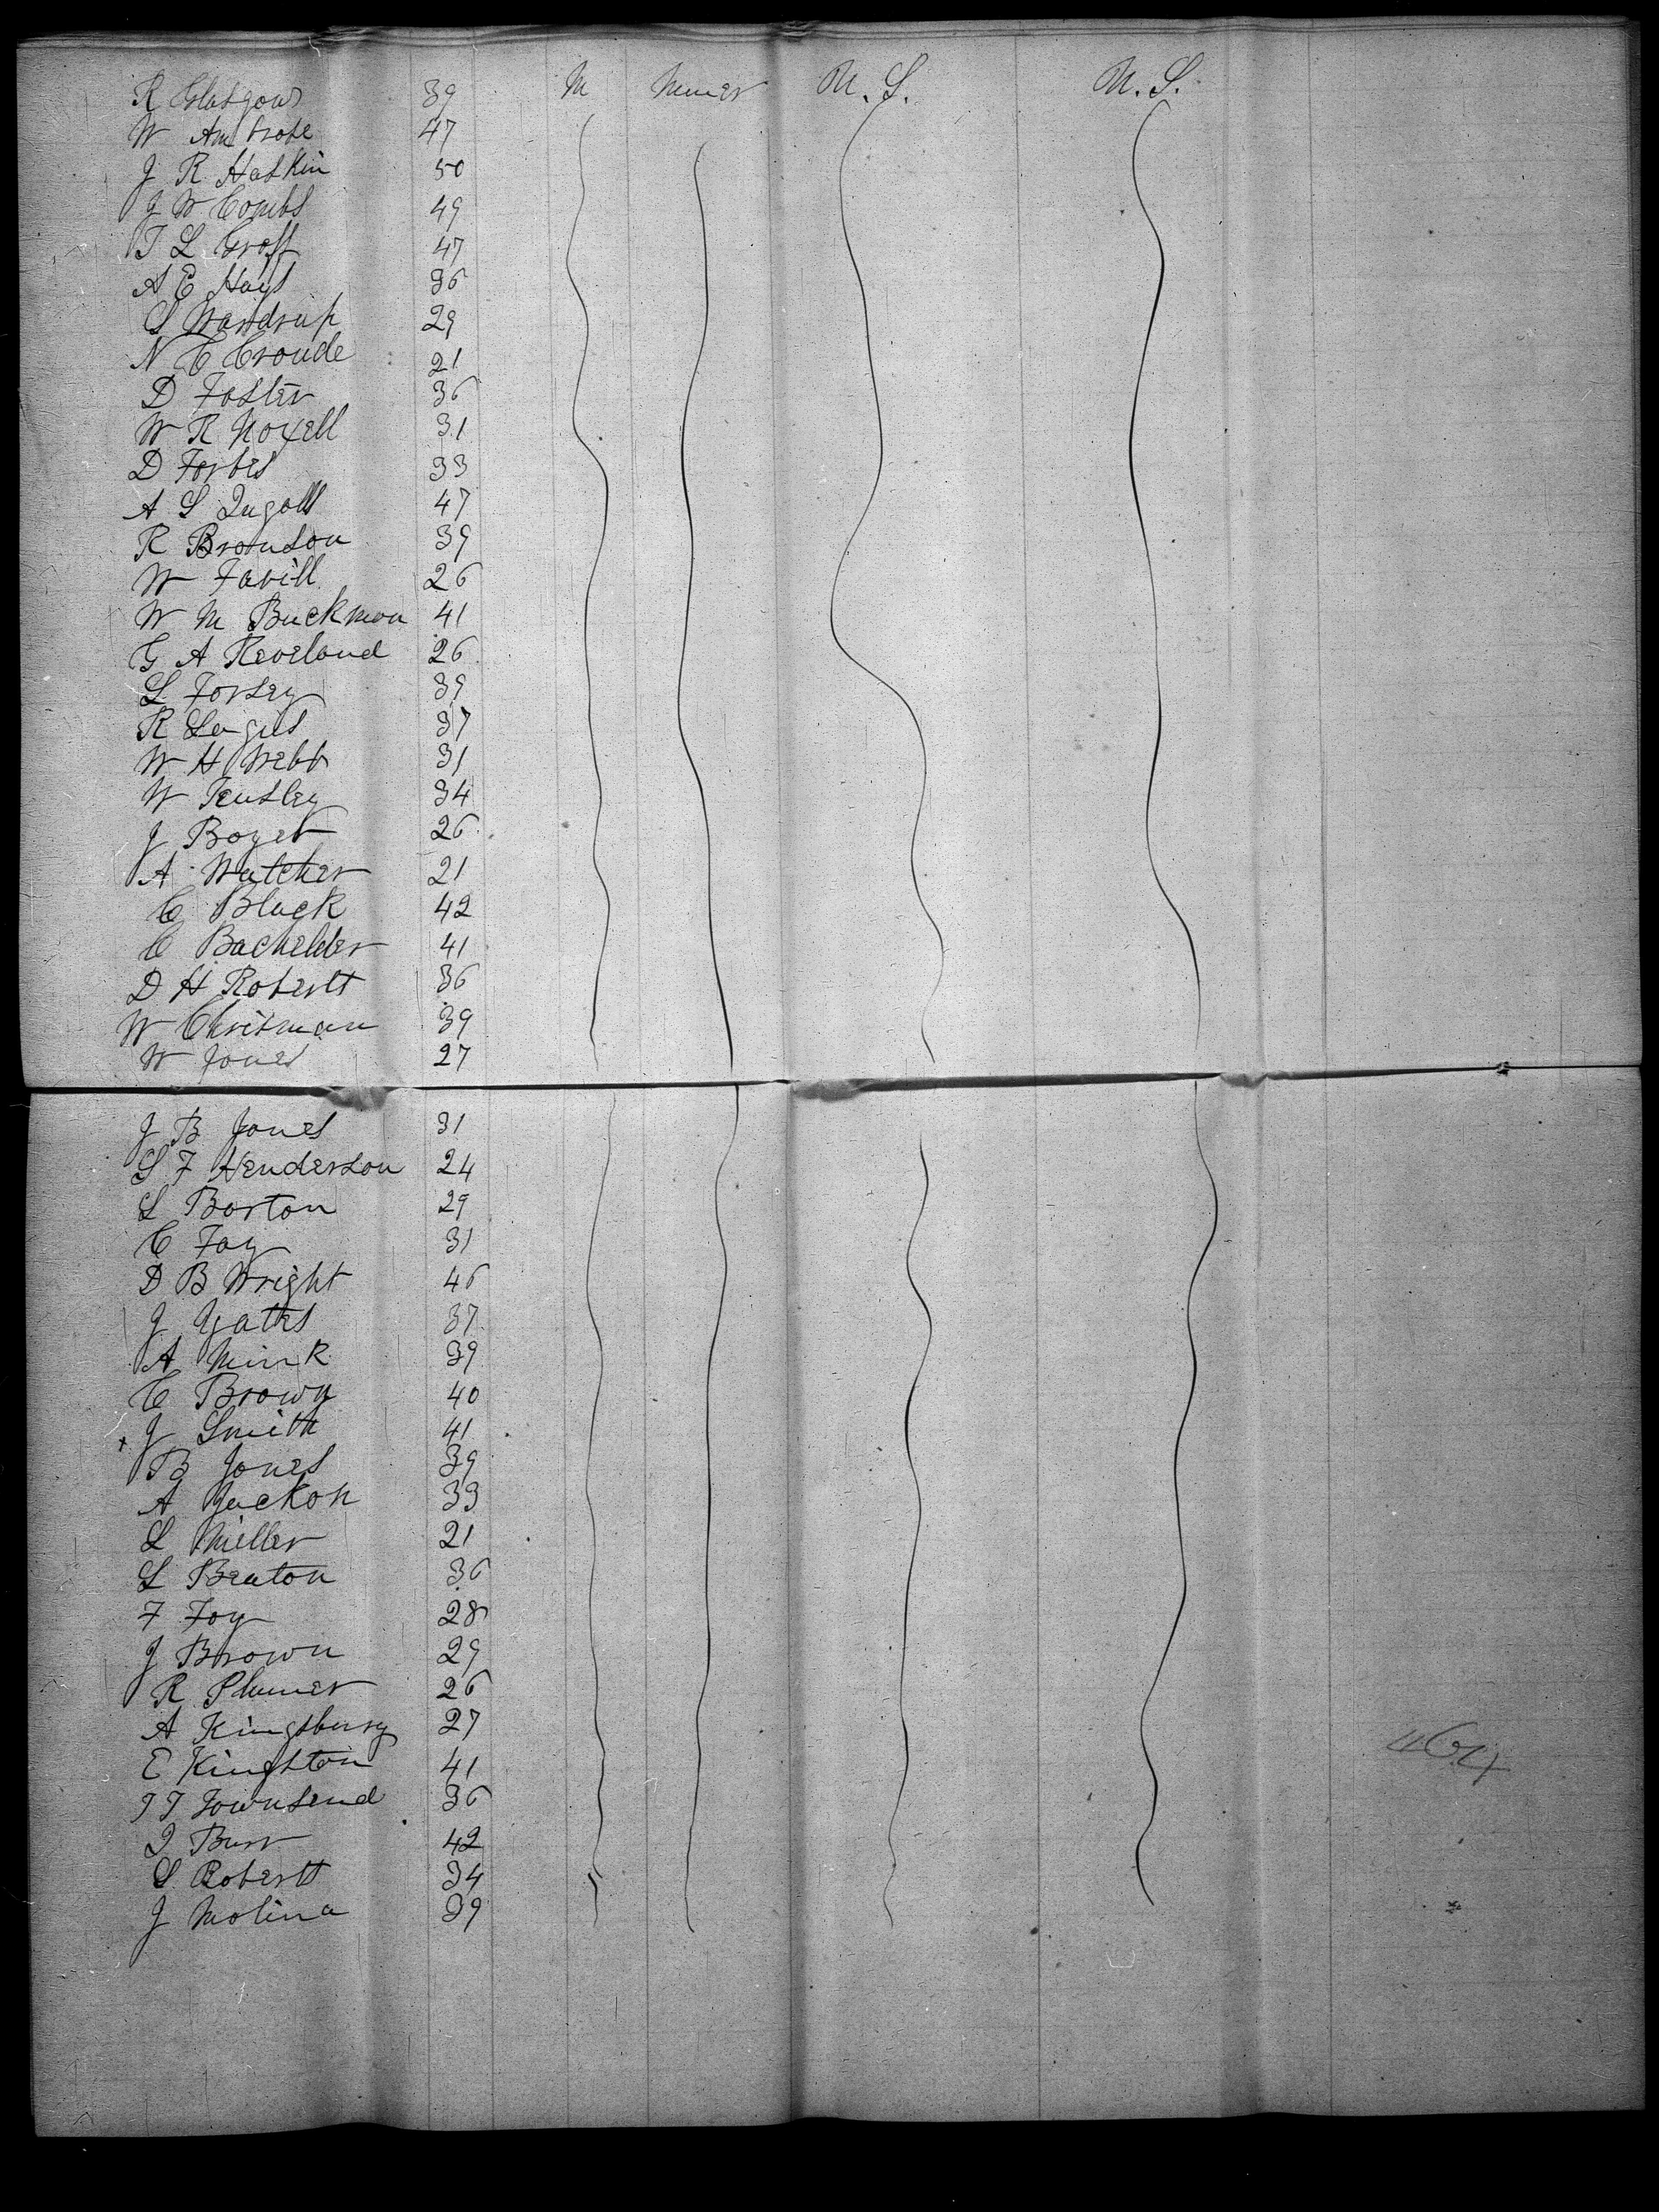 R Glasgow 39 M Miner U. S. U. S.
W Ambrose 47
J R Haskin 50
J W Combs 49
T L Groff 47
A E Hays 36
S Wardrup 29
N C Croude 21
D Foster 36
W R Noxell 31
D Forbes 33
A S Ingalls 47
R Bronson 39
W Favill 26
W M Buckman 41
G A Keveland 26
L Forsey 39
R 37
W H Webb 31
W Tensley 34
J Boyer 26
A Watcher 21
C Black 42
C Bachelder 41
D H Roberts 36
W Chrisman 39
W Jones 27
J B Jones 31
S F Henderson 24
L Barton 29
C Fay 31
D B Wright 46
J Yates 37
A Mink 39
C Brown 40
x J Smith 41
B Jones 39
A Jackon 33
L Miller 21
L Benton 36
F Foy 28
J Brown 29
R Plumer 26
A Kingsbury 27
E Kingston 41
T T Townsend 36
I Burr 42
S Roberts 34
J Molina 39
464